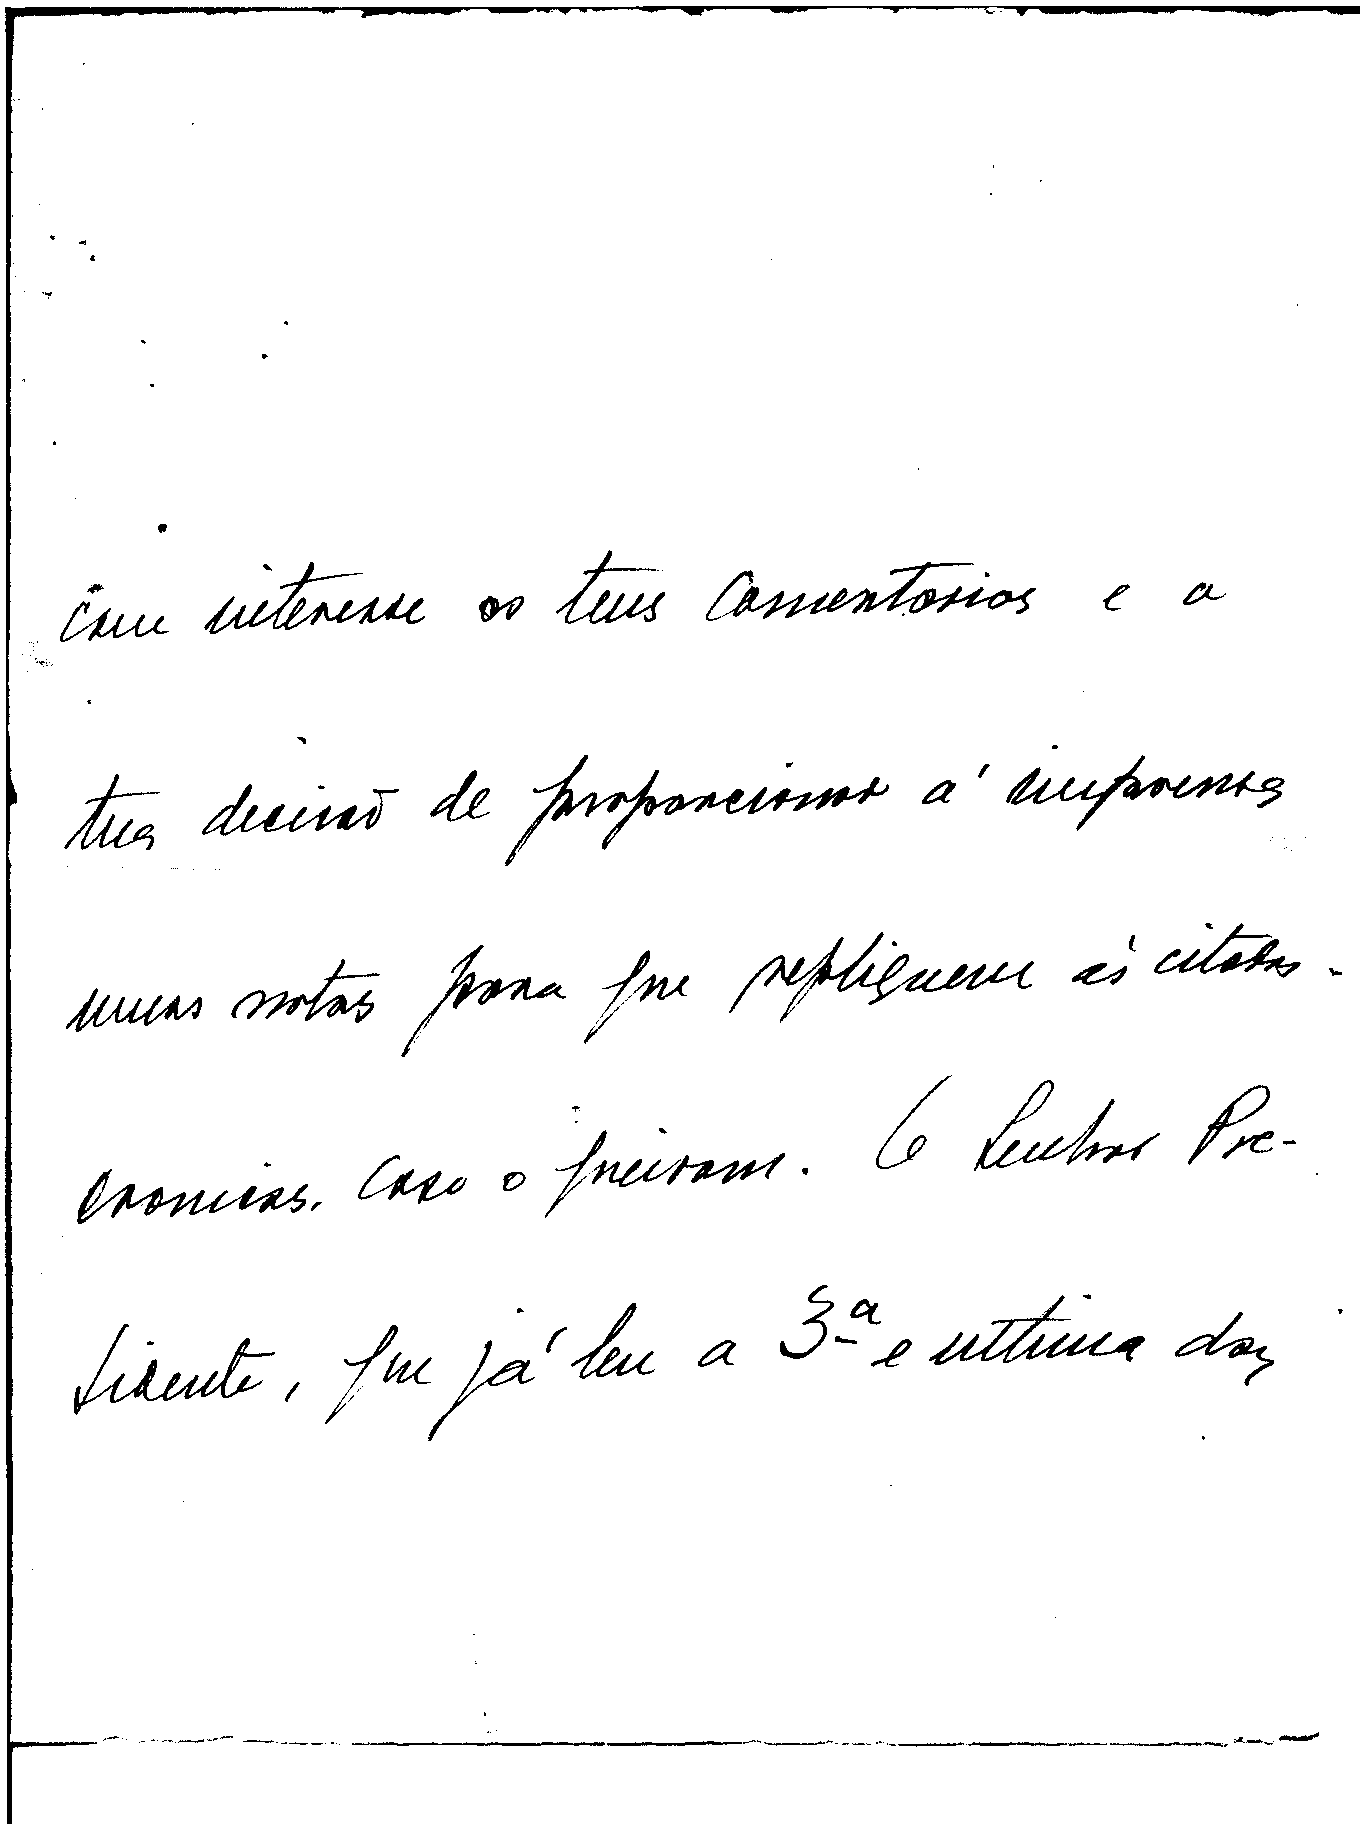 com interesse os teus comentarios e a
tua decisão de proporcionar á imprensa
umas notas para que repliquem ás citadas
cronicas, caso o queiram. O Senhor Pre-
sidente, que já leu a 3ª e ultima das